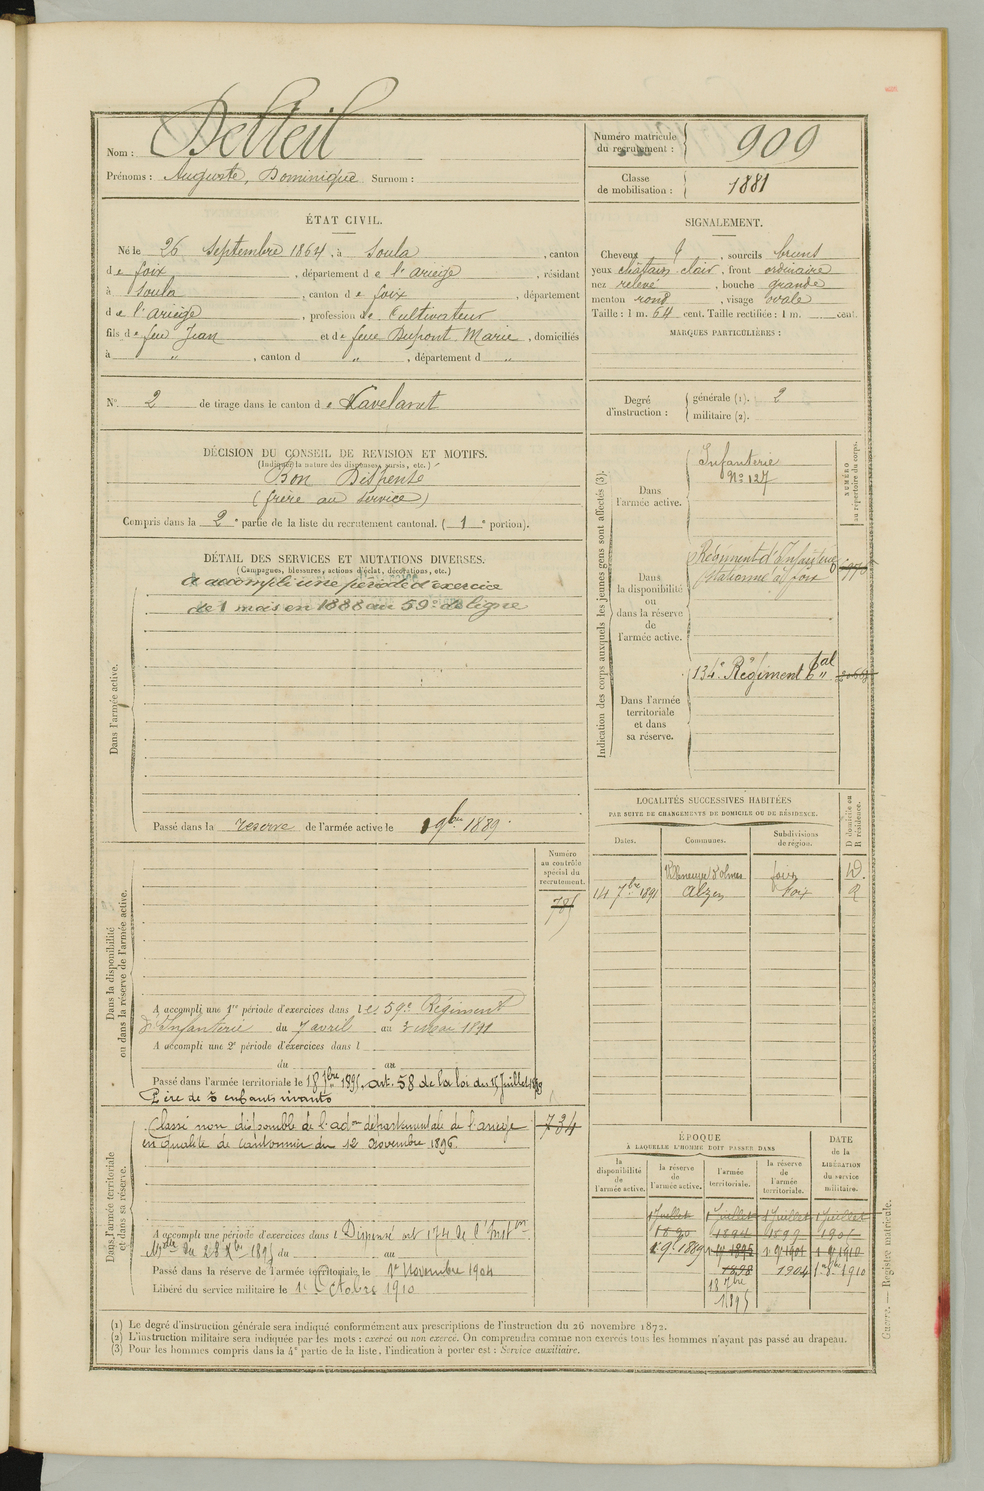 Nom : Delteil
Prénoms : Auguste, Dominique Surnom :
ÉTAT CIVIL.
Né le 26 Septembre 1864, à Soula, canton
de foix, département de l'ariège, résidant
à Soula, canton de foix, département
de l'ariège, profession de Cultivateur
fils de feu Jean et de feue Dupont Marie, domiciliés
à " , canton d " , département d "
N° 2 de tirage dans le canton de Lavelanet
DÉCISION DU CONSEIL DE REVISION ET MOTIFS.
(Indiquer la nature des dispenses, sursis, etc.)
Bon Dispensé
(frère au service)
Compris dans la 2e partie de la liste du recrutement cantonal. (1e portion).
DÉTAIL DES SERVICES ET MUTATIONS DIVERSES.
(Campagnes, blessures, actions d'éclat, décorations, etc.)
Dans l'armée active.
a accompli une période d'exercice
de 1 mois en 1888 au 59e de ligne
Passé dans la reserve de l'armée active le 1 9bre 1889.
Dans la disponibilité
ou dans la réserve de l'armée active.
Numéro
au contrôle
spécial du
recrutement.
785
A accompli une 1re période d'exercices dans le 59e Régiment
d'Infanterie du 7 avril au 3 mai 1891
A accompli une 2e période d'exercices dans l
du au
Passé dans l'armée territoriale le 18 7bre 1895, art. 58 de la loi du 15 Juillet 1889
Père de 5 enfants vivants
Dans l'armée territoriale
et dans sa réserve.
734
Classé non disponible de l'adon départementale de l'ariège
en qualité de cantonnier du 12 Novembre 1896.
A accompli une période d'exercices dans l Dispensé art 174 de l'Inston
Mlle du 28 Xbre 1895 du au
Passé dans la réserve de l'armée territoriale le 1er Novembre 1904
Libéré du service militaire le 1er Octobre 1910
Numéro matricule
du recrutement : 909
Classe
de mobilisation : 1881
SIGNALEMENT.
Cheveux , sourcils bruns
yeux châtain clair, front ordinaire
nez relevé, bouche grande
menton rond, visage ovale
Taille : 1 m. 64 cent. Taille rectifiée : 1 m. cent.
MARQUES PARTICULIÈRES :
Degré
d'instruction :
générale (1). 2
militaire (2).
Indication des corps auxquels les jeunes gens sont affectés (3).
NUMÉRO
au répertoire du corps.
Dans
l'armée active.
Infanterie
No 127
Dans
la disponibilité
ou
dans la réserve
de
l'armée active.
Régiment d'Infanterie
stationné à foix
Dans l'armée
territoriale
et dans
sa réserve.
134e Régiment tal
LOCALITÉS SUCCESSIVES HABITÉES
PAR SUITE DE CHANGEMENTS DE DOMICILE OU DE RÉSIDENCE.
D domicile ou
R résidence.
Dates. Communes. Subdivisions
de région.
Villeneuve d'olmes foix D.
14 7bre 1891 Alzen foix R
ÉPOQUE
À LAQUELLE L'HOMME DOIT PASSER DANS
la
disponibilité
de
l'armée active.
la réserve
de
l'armée active.
l'armée
territoriale.
la réserve
de
l'armée
territoriale.
DATE
de la
LIBÉRATION
du service
militaire.
1 Juillet 1 Juillet 1 Juillet 1 Juillet
1890 1894 1899 1905
1 9b 1889 1 9b 1895 1 9b 1901 1 9b 1910
1898 1904 1er 8bre 1910
18 7bre
1895
(1) Le degré d'instruction générale sera indiqué conformément aux prescriptions de l'instruction du 26 novembre 1872.
(2) L'instruction militaire sera indiquée par les mots : exercé ou non exercé. On comprendra comme non exercés tous les hommes n'ayant pas passé au drapeau.
(3) Pour les hommes compris dans la 4e partie de la liste, l'indication à porter est : Service auxiliaire.
Guerre. — Registre matricule.